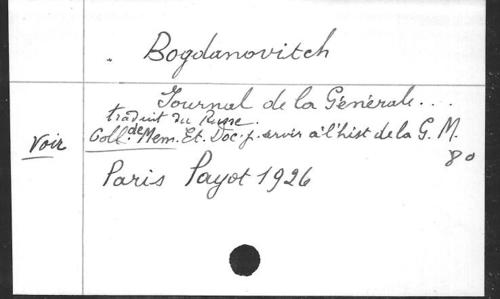 Bogdanovitch
Journal de la Générale...
traduit du Russe.
Voir Coll. de Mem. Et. Doc. p. servir à l'hist de la G. M.
8o
Paris Payot 1926